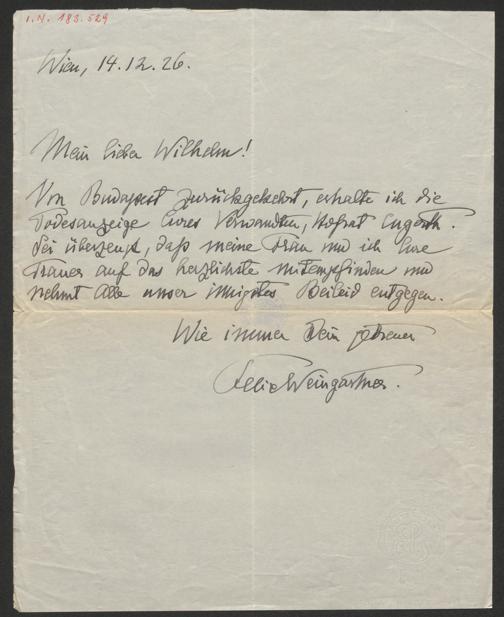 I.N. 183.529
Wien, 14.12.26.
Mein lieber Wilhelm!
Von Budapest zurückgekehrt, erhalte ich die
Todesanzeige Eures Verwandten, Hofrat
Sei überzeugt, daß meine Frau und ich Eure
Trauer auf das herzlichste mitempfinden und
nehmt Alle unser innigstes Beileid entgegen.
Wie immer Dein getreuer
Felix Weingartner.